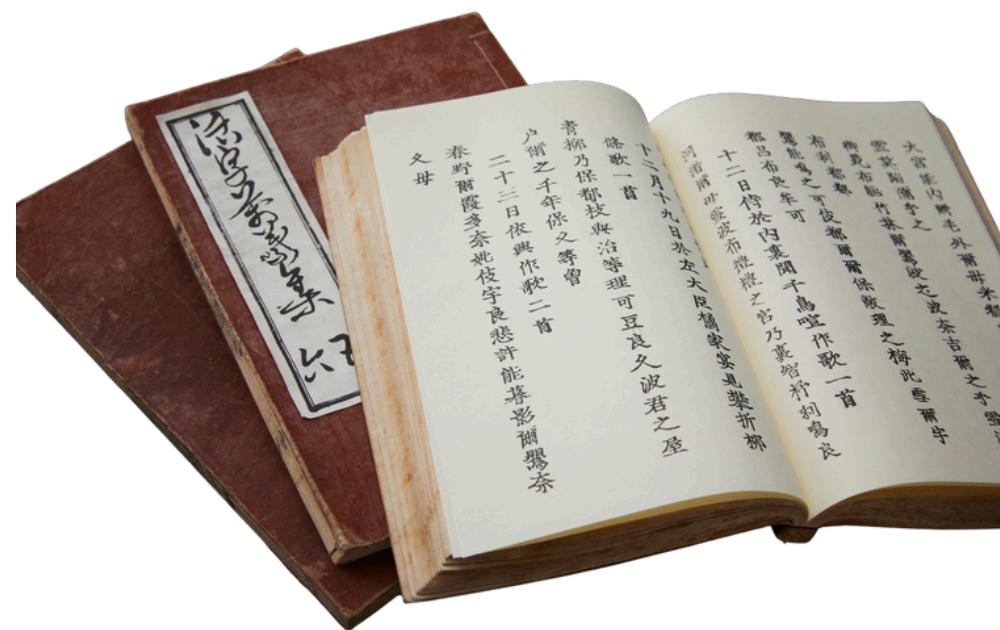 萬葉集
六
大宮能内爾毛外爾母米都
雪莫踏祢乎之
御苑布能竹林爾鸎波之波奈吉爾之乎雪
布利都都
鸎能鳴之可伎都爾爾保敝理之梅此雪爾宇
都呂布良牟可
十二日侍於内裏聞千鳥喧作歌一首
河渚爾母雪波布禮禮之宮乃裏智杼利鳴良
二月十九日於左大臣橘家宴見攀折柳
條歌一首
青柳乃保都枝與治等理可豆良久波君之屋
戸爾之千年保久等曾
二十三日依興作歌二首
春野爾霞多奈妣伎宇良悲許能暮影爾鸎奈
久母